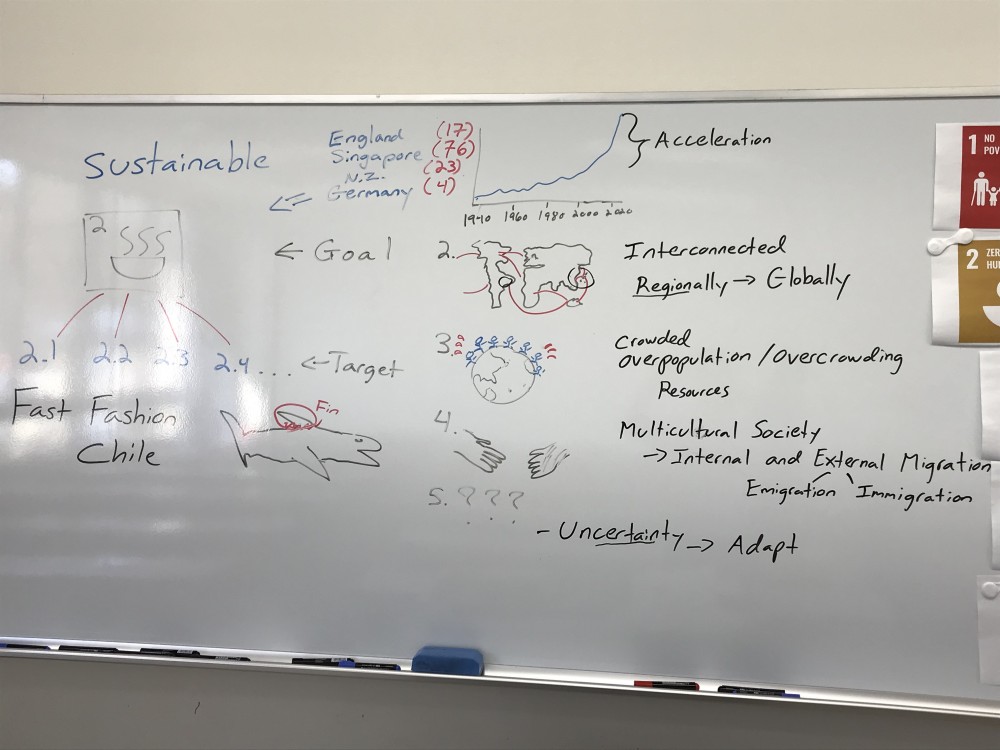 Sustainable
England (17)
Singapore (76)
N.Z. (23)
Germany (4)
1940 1960 1980 2000 2020
Acceleration
2
← Goal
2.1 2.2 2.3 2.4 . . . ← Target
Fast Fashion
Chile
Fin
2.
Interconnected
Regionally → Globally
3.
Crowded
overpopulation / overcrowding
Resources
4.
Multicultural Society
→ Internal and External Migration
Emigration Immigration
5. ? ? ?
- Uncertainty → Adapt
1 NO
POV
2 ZER
HUN